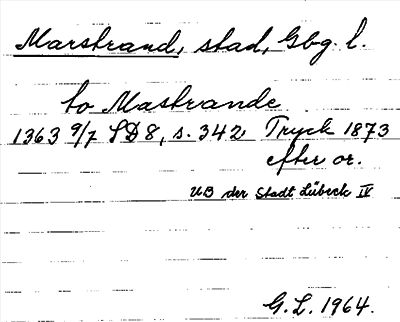 Marstrand, stad, Gbg. l.
to Mastrande
1363 9/7 SD 8, s. 342, Tryck 1873
efter or.
UB der Stadt Lübeck IV
G.L. 1964.